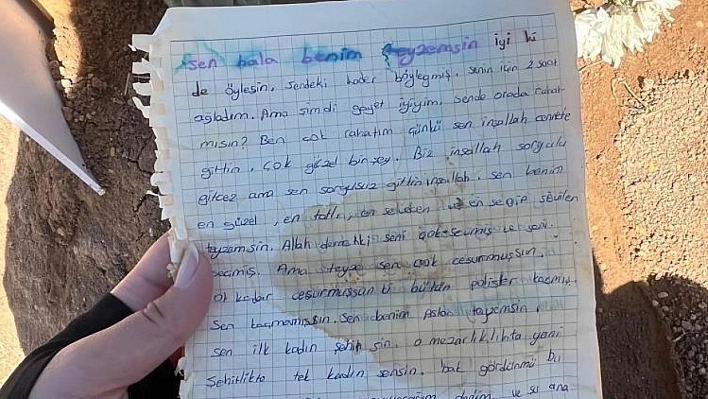 sen hala benim teyzemsin iyi ki
de öylesin. sendeki kader böyleymiş. senin için 2 saat
ağladım. Ama şimdi gayet iyiyim. sende orada rahat
mısın? Ben çok rahatım çünkü sen inşallah cennete
gittin. çok güzel bir şey. Biz inşallah sorgulu
gitcez ama sen sorgusuz gittin inşallah. sen benim
en güzel, en tatlı, en seven ve en sevilen
teyzemsin. Allah demekki seni çok sevmiş ve seni
seçmiş. Ama teyze sen çok cesurmuşsun.
O kadar cesurmuşsun ki bütün polisler kaçmış.
sen kaçmamışsın. sen benim Aslan teyzemsin.
sen ilk kadın şehitsin. o mezarlıklıkta yani
şehitlikte tek kadın sensin. bak gördünmü bu
dedim ve şu ana